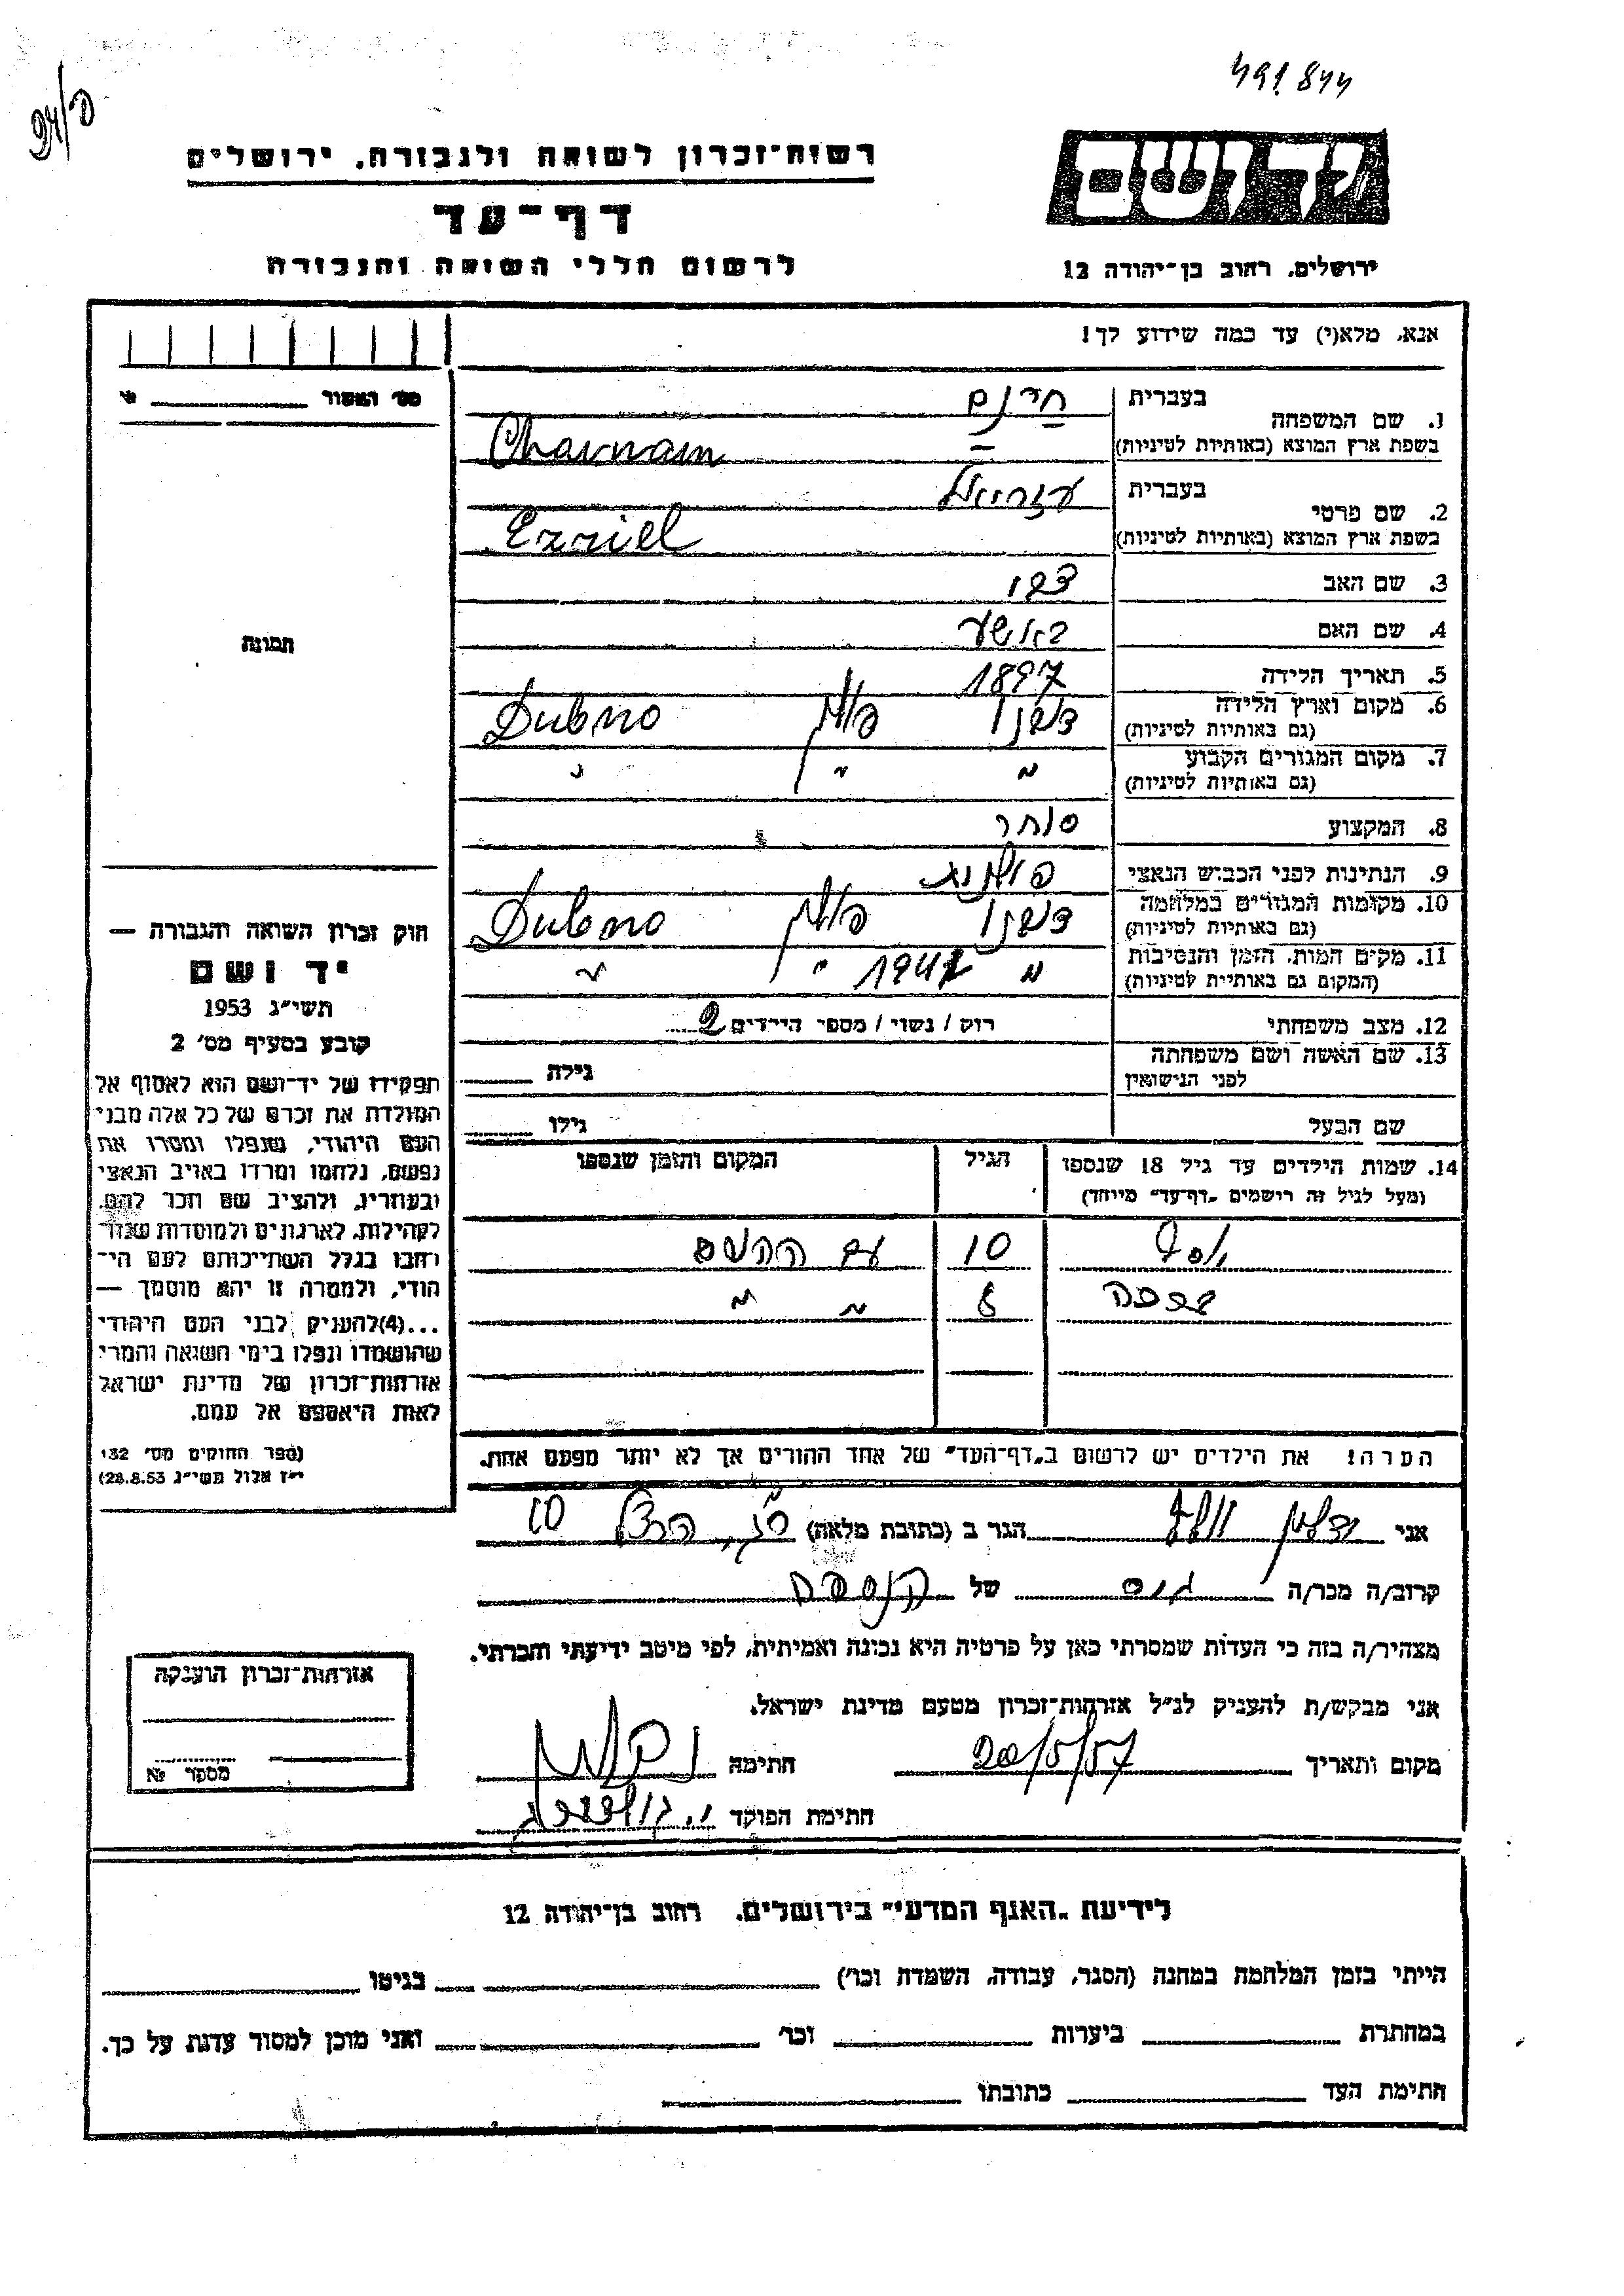 491.844
94/ס
רשות־זכרון לשואה ולגבורה, ירושלים
דף־עד
לרשום חללי השואה והגבורה
יד ושם
ירושלים, רחוב בן־יהודה 12
אנא, מלא(י) עד כמה שידוע לך!
מס' האשור
1. שם המשפחה
בעברית
בשפת ארץ המוצא (באותיות לטיניות)
Charnam
2. שם פרטי
בעברית עזריאל
בשפת ארץ המוצא (באותיות לטיניות) Ezriel
3. שם האב
4. שם האם
5. תאריך הלידה 1897
6. מקום וארץ הלידה
(גם באותיות לטיניות) דובנו פולין Dubno
7. מקום המגורים הקבוע
(גם באותיות לטיניות) " " "
8. המקצוע סוחר
9. הנתינות לפני הכבוש הנאצי פולנית
10. מקומות המגורים במלחמה
(גם באותיות לטיניות) דובנו פולין Dubno
11. מקום המות, הזמן והנסיבות
(המקום גם באותיות לטיניות) " 194 " "
12. מצב משפחתי רוק / נשוי / מספר הילדים 2
13. שם האשה ושם משפחתה
לפני הנישואין
גילה
שם הבעל גילו
14. שמות הילדים עד גיל 18 שנספו
(מעל לגיל זה רושמים "דף־עד" מיוחד)
הגיל
המקום והזמן שנספו
יוסף 10 עם ההורים
8 " "
הערה! את הילדים יש לרשום ב"דף־העד" של אחד ההורים אך לא יותר מפעם אחת.
תמונה
חוק זכרון השואה והגבורה —
יד ושם
תשי"ג 1953
קובע בסעיף מס' 2
תפקידו של יד־ושם הוא לאסוף אל
המולדת את זכרם של כל אלה מבני
העם היהודי, שנפלו ומסרו את
נפשם, נלחמו ומרדו באויב הנאצי
ובעוזריו, ולהציב שם וזכר להם,
לקהילות, לארגונים ולמוסדות שנוד
וחבו בגלל השתייכותם לעם הי־
הודי, ולמטרה זו יהא מוסמך —
...(4)להעניק לבני העם היהודי
שהושמדו ונפלו בימי השואה והמרי
אזרחות־זכרון של מדינת ישראל
לאות היאספם אל עמם.
(ספר החוקים מס' 132
י"ז אלול תשי"ג 28.8.53)
אני הגר ב (כתובת מלאה) הרצל 10
קרוב/ה מכר/ה גיס של הנספה
מצהיר/ה בזה כי העדות שמסרתי כאן על פרטיה היא נכונה ואמיתית, לפי מיטב ידיעתי והכרתי.
אני מבקש/ת להעניק לנ"ל אזרחות־זכרון מטעם מדינת ישראל.
מקום ותאריך 20/5/57 חתימה
חתימת הפוקד
אזרחות־זכרון הוענקה
מספר №
לידיעת "האגף המדעי" בירושלים, רחוב בן־יהודה 12
הייתי בזמן המלחמה במחנה (הסגר, עבודה, השמדה וכו') בגיטו
במחתרת ביערות וכו' ואני מוכן למסור עדות על כך.
חתימת העד כתובתו